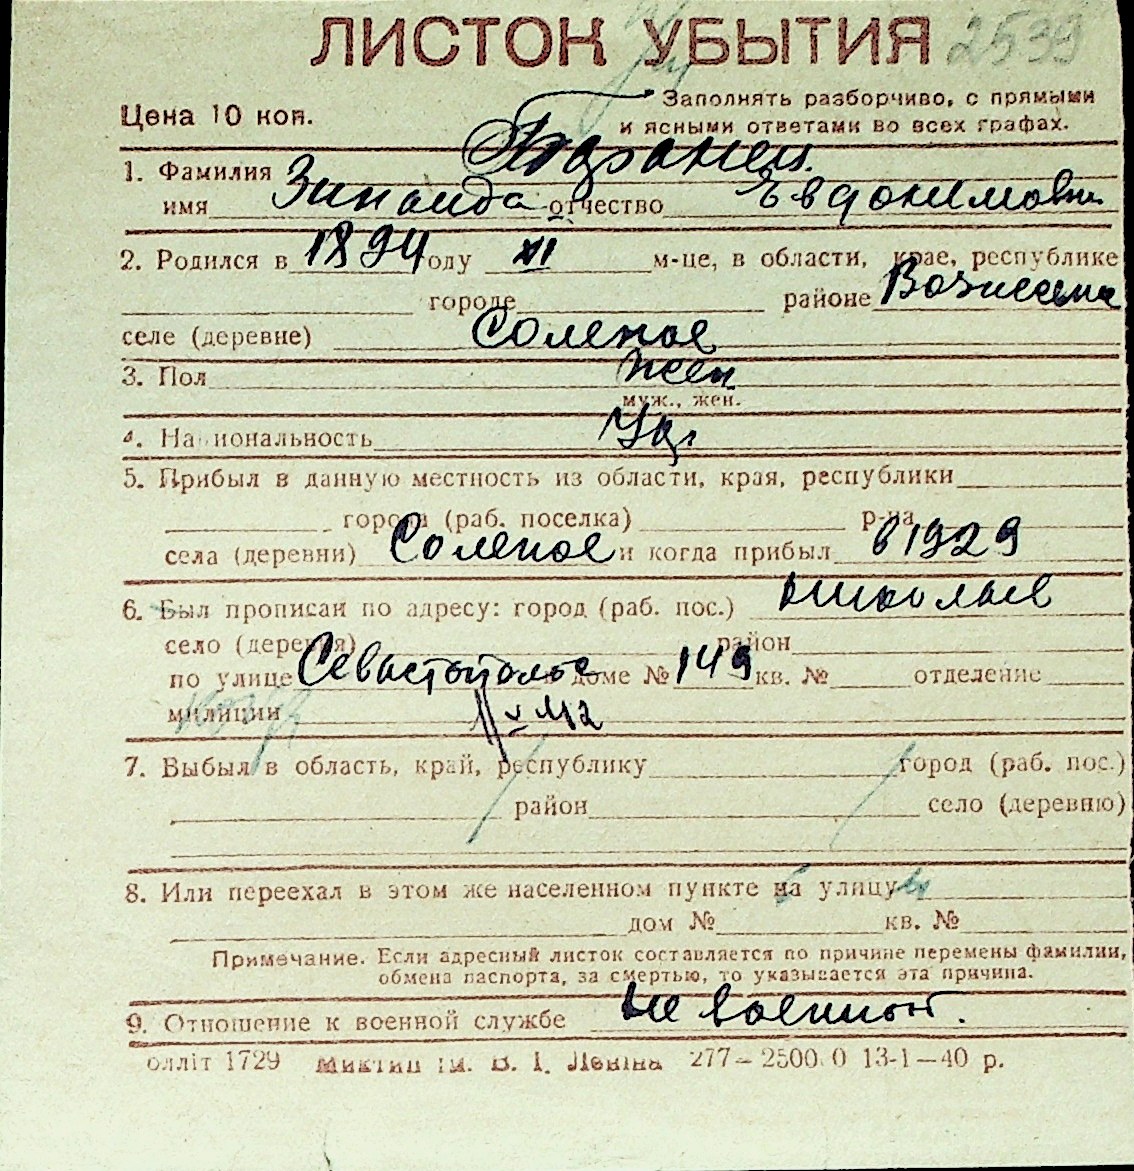 ЛИСТОК УБЫТИЯ 2539
Цена 10 коп.
Заполнять разборчиво, с прямыми
и ясными ответами во всех графах.
1. Фамилия
имя Зинаида отчество Евдокимовн
2. Родился в 1894 году XI м-це, в области, крае, республике
городе районе Вознесенк
селе (деревне) Соленое
3. Пол жен
муж., жен.
4. Национальность Укр
5. Прибыл в данную местность из области, края, республики
города (раб. поселка) р-на
села (деревни) Соленое и когда прибыл в 1929
6. Был прописан по адресу: город (раб. пос.) Николаев
село (деревня) район
по улице Севастопольс доме № 149 кв. № отделение
милиции
7. Выбыл в область, край, республику город (раб. пос.)
район село (деревню)
8. Или переехал в этом же населенном пункте на улицу
дом № кв. №
Примечание. Если адресный листок составляется по причине перемены фамилии,
обмена паспорта, за смертью, то указывается эта причина.
9. Отношение к военной службе не военнот.
олліт 1729 ім. В. І. Леніна 277—2500 0 13-1—40 р.